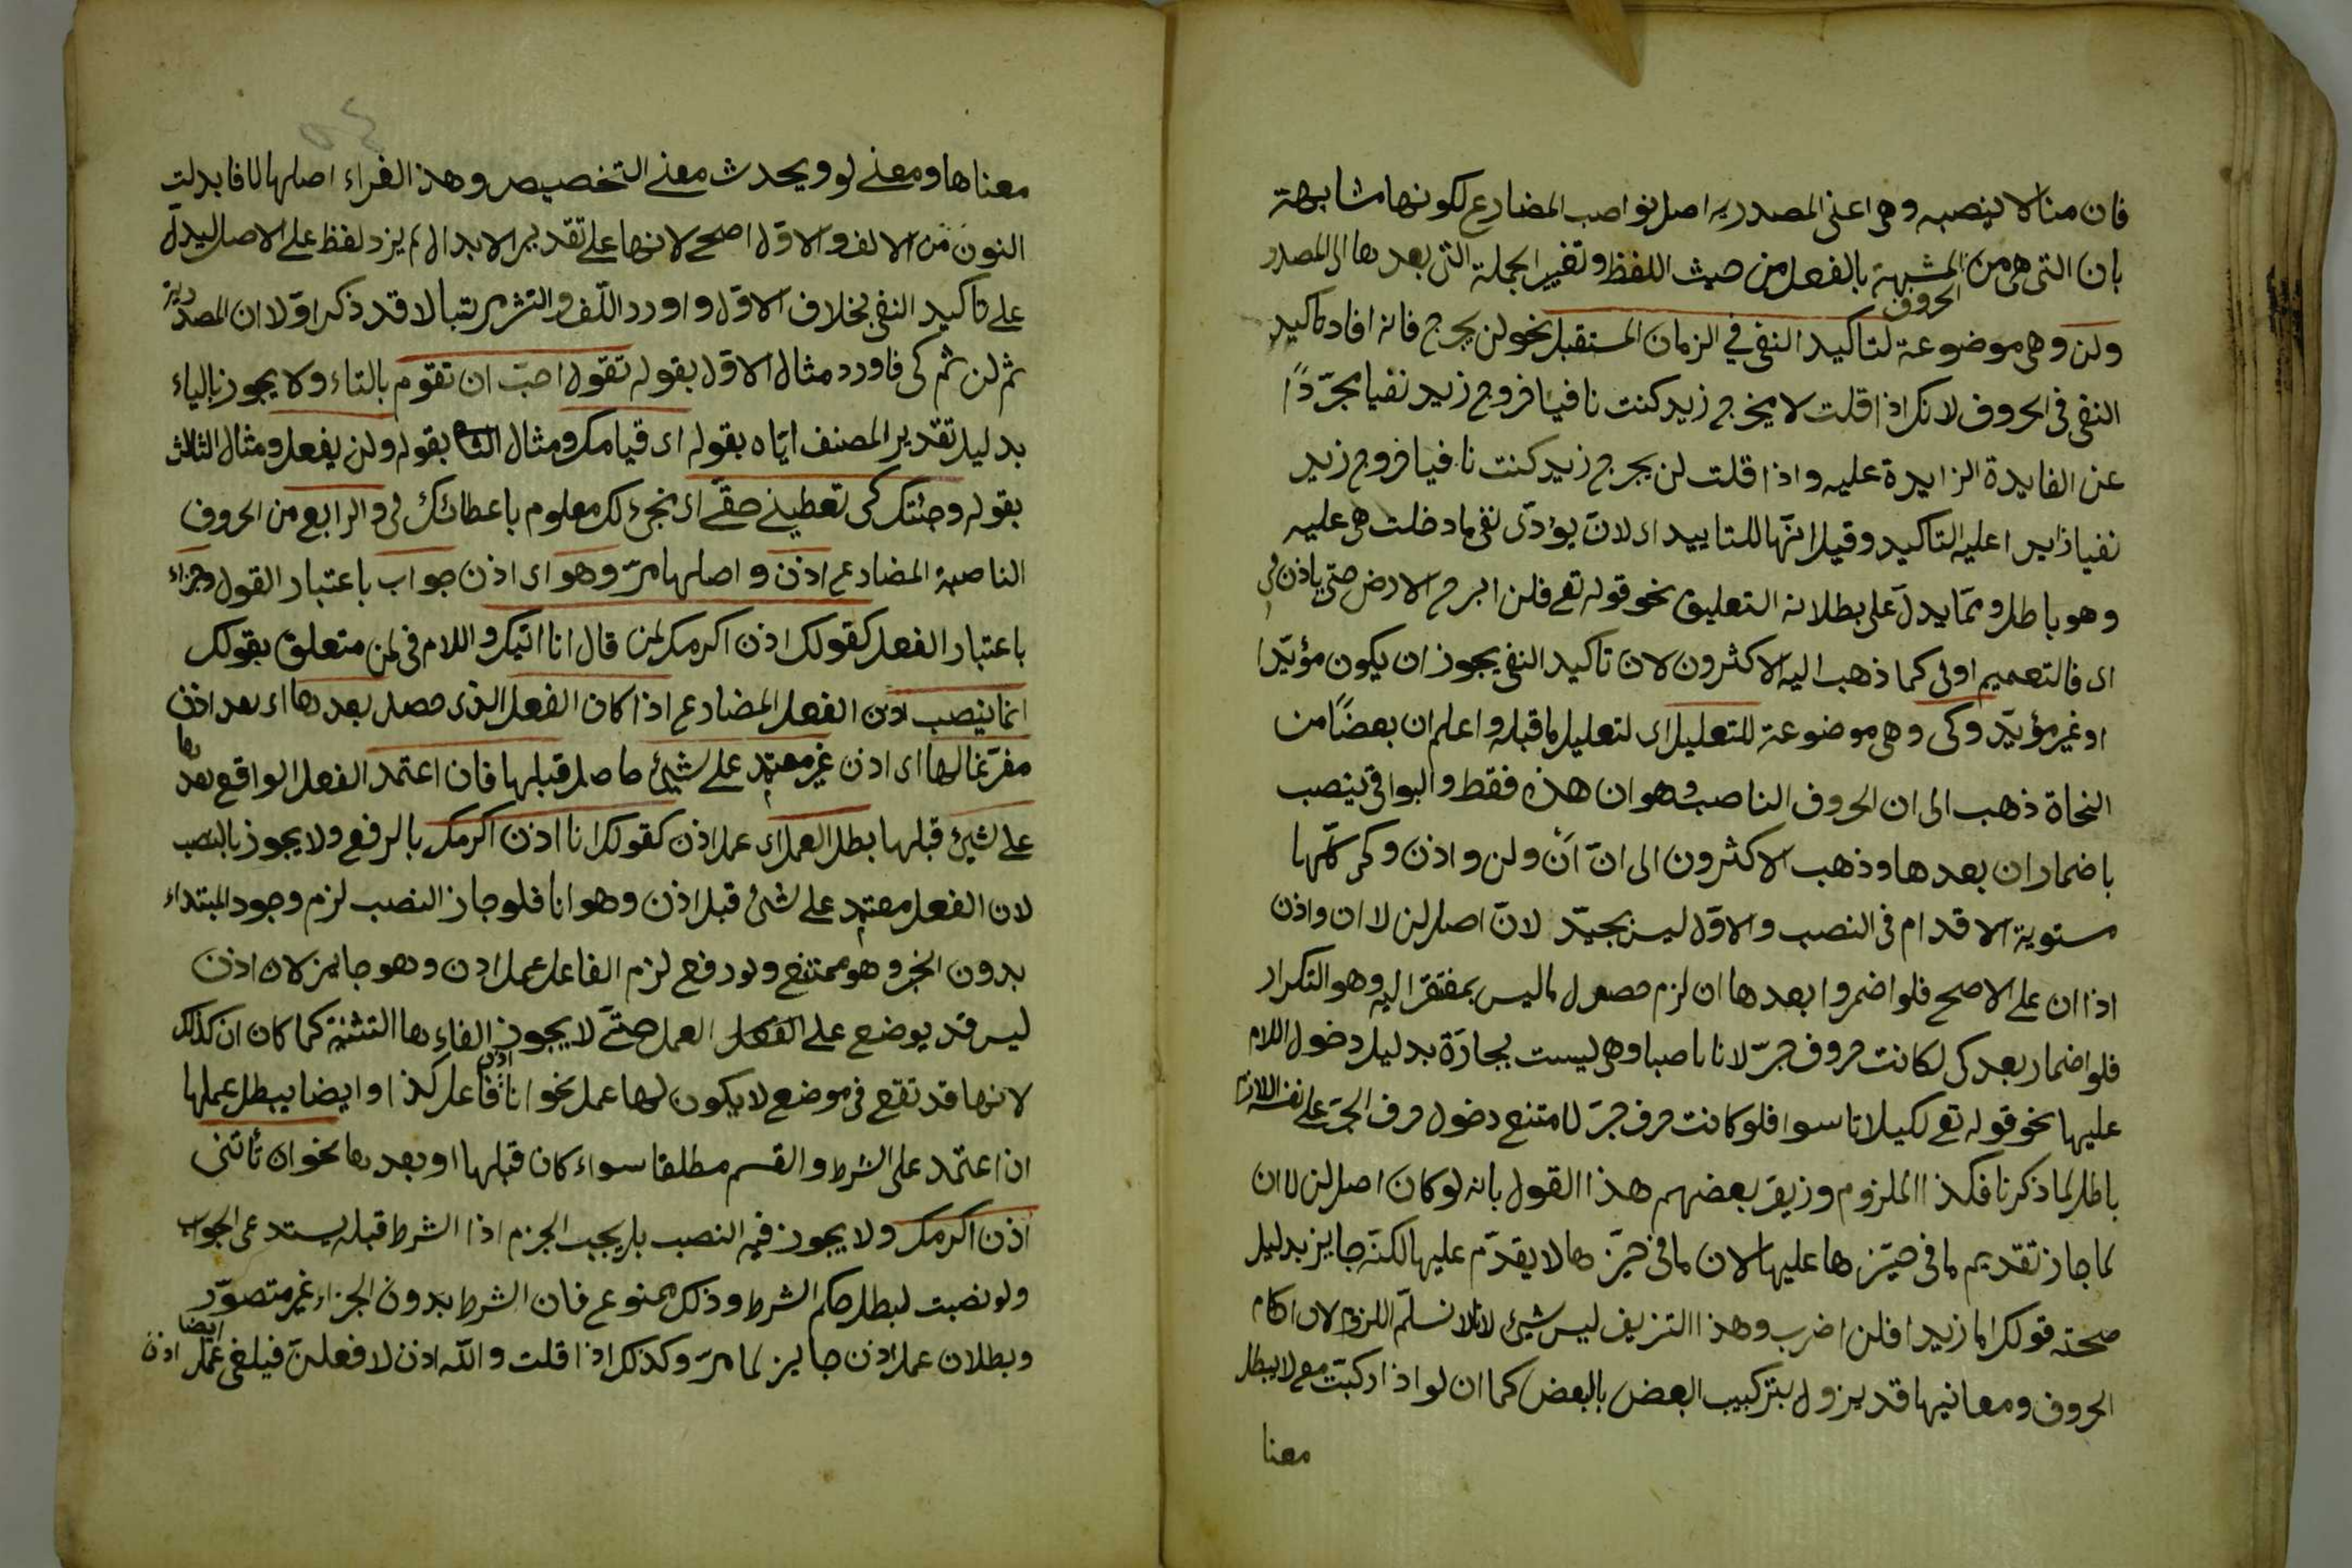 فان منا لا ينصبه وهي اعنى المصدريه اصل نواصب المضارع لكونها مشابهة
بان التى هى من المشبهة بالفعل من حيث اللفظ وتغيير الجملة التى بعدها الى المصدر
الحروف
ولن وهي موضوعة لتاكيد النفي في الزمان المستقبل نحو لن يخرج فانه افاد تاكيد
النفى فى الحروف لانك اذا قلت لا يخرج زيد كنت نافيا خروج زيد نفيا مجرّدًا
عن الفايدة الزايدة عليه واذا قلت لن يخرج زيد كنت نافيا خروج زيد
نفيا زايدا عليه التاكيد وقيل انّها للتاييد اى لانّ يؤدّى نفى ما دخلت هى عليه
وهو باطل وممّا يدلّ على بطلانه التعليق نحو قوله تع فلن ابرح الارض حتى ياذن لى
اى فالتعميم اولى كما ذهب اليه الاكثرون لان تاكيد النفى يجوز ان يكون مؤبّدا
او غير مؤبّد وكى وهى موضوعة للتعليل اى لتعليل ما قبله واعلم ان بعضًا من
النحاة ذهب الى ان الحروف الناصب وهو ان هذه فقط والبواقى ينصب
باضمار ان بعدها وذهب الاكثرون الى انّ اَنْ ولن واذن وكى كلّها
مستوية الاقدام فى النصب والاوّل ليس بجيّد لانّ اصل لن لا ان واذن
اذا ان على الاصح فلو اضمروا بعدها ان لزم حصول ما ليس بمفتقر اليه وهو التكرار
فلو اضمار بعد كى لكانت حروف جرّ لانا ناصبا وهى ليست بجارّة بدليل دخول اللام
عليها نحو قوله تع لكيلا تاسوا فلو كانت حرف جرّ لامتنع دخول حرف الجرّ على نفسه اللازم
باطل لما ذكرنا فكذا الملزوم وزيّف بعضهم هذا القول بانه لو كان اصل لن لا ان
لما جاز تقديم ما فى حيّزها عليها لان ما فى حيّزها لا يقدّم عليها لكنّه جايز بدليل
صحة قولك اما زيدا فلن اضرب وهذا التزيف ليس بشيئ لانا لا نسلّم اللزوم لان احكام
الحروف ومعانيها قد يزول بتركيب البعض بالبعض كما ان لو اذا ركبت مع لا يبطل
معنا
معناها ومعنى لو ويحدث معنى التخصيص وهذا الفراء اصلها لا فابدلت
النون من الالف والاوّل اصح لانها على تقدير الابدال لم يزد لفظ على الاصل ليدلّ
على تاكيد النفى بخلاف الاوّل واورد اللّف والنشر مرتبا لا قد ذكر اوّلا ان المصدرية
ثم لن ثم كى فاورد مثال الاوّل بقوله تقول احبّ ان تقوم بالتاء ولا يجوز بالياء
بدليل تقدير المصنف ايّاه بقوله اى قيامك ومثال الثانى بقوله ولن يفعل ومثال الثالث
بقوله وجئتك كى تعطينى حقّى اى مجيئ لك معلوم باعطائك لى والرابع من الحروف
الناصبة المضارع اذن واصلها مرّ وهو اى اذن جواب باعتبار القول وجزاء
باعتبار الفعل كقولك اذن اكرمك لمن قال انا اتيك واللام فى لمن متعلق بقولك
انما ينصب اذن الفعل المضارع اذا كان الفعل الذى حصل بعدها اى بعد اذن
مفرّغا لها اى اذن غير معتمد على شيئ حاصل قبلها فان اعتمد الفعل الواقع بعدها
على شيئ قبلها بطل العمل اى عمل اذن كقولك انا اذن اكرمك بالرفع ولا يجوز بالنصب
لان الفعل معتمد على شئ قبل اذن وهو انا فلو جاز النصب لزم وجود المبتداء
بدون الخبر وهو ممتنع ولو رفع لزم الغاء عمل اذن وهو جايز لان اذن
ليس قد يوضع على الفعل العمل حتّى لا يجوز الغاءها التثنية كما كان ان كذلك
لانها قد تقع فى موضع لا يكون لها عمل نحو انا اذن فاعل كذا وايضا يبطل عملها
ان اعتمد على الشرط والقسم مطلقا سواء كان قبلها او بعدها نحو ان تأتنى
اذن اكرمك ولا يجوز فيه النصب بل يجب الجزم اذا الشرط قبله يستدعى الجواب
ولو نصبت لبطل حكم الشرط وذلك ممنوع فان الشرط بدون الجزاء غير متصوّر
وبطلان عمل اذن جايز لما مرّ وكذلك اذا قلت والله اذن لافعلنّ فيلغى عمل اذن
ايضا